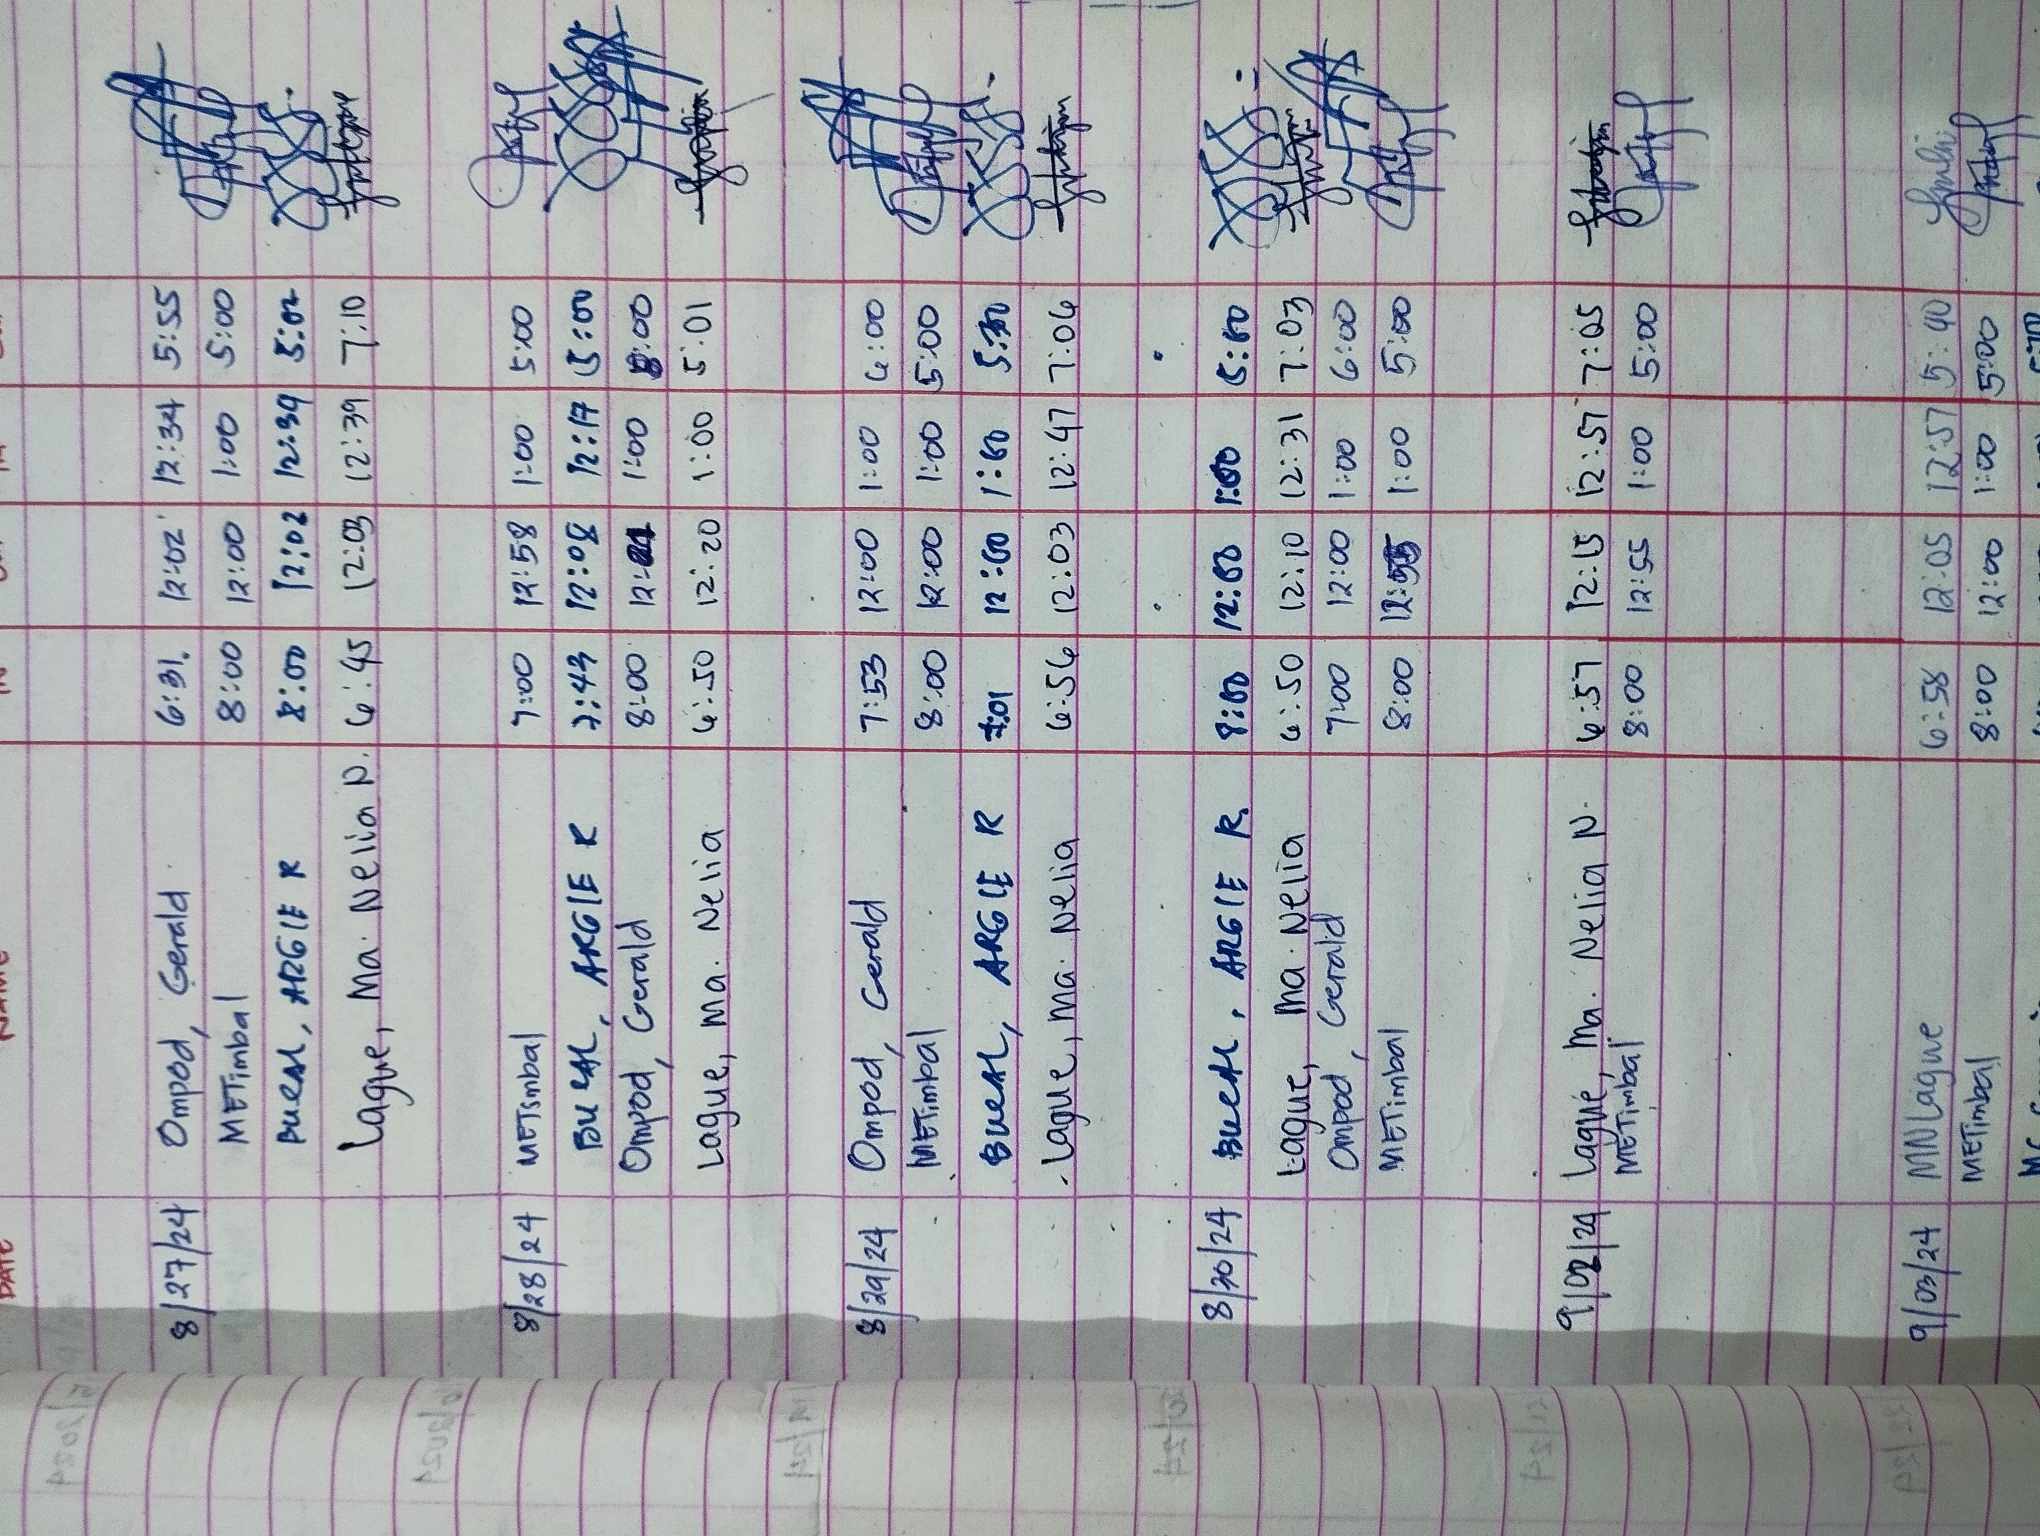 DATE NAME IN OUT IN OUT
8/27/24 Ompod, Gerald 6:31. 12:02 12:34 5:55
METimbal 8:00 12:00 1:00 5:00
BUEAL, ARGIE R 8:00 12:02 12:39 5:02
Lague, Ma. Nelia N. 6:45 12:03 12:39 7:10
8/28/24 METimbal 7:00 12:58 1:00 5:00
BUEAL, ARGIE R 7:43 12:08 12:17 5:00
Ompod, Gerald 8:00 1:00 8:00
Lague, Ma. Nelia 6:50 12:20 1:00 5:01
8/29/24 Ompod, Gerald 7:53 12:00 1:00 6:00
METimbal 8:00 12:00 1:00 5:00
BUEAL, ARGIE R 12:00 1:00 5:30
Lague, Ma. Nelia 6:56 12:03 12:47 7:06
8/30/24 BUEAL, ARGIE R. 8:00 12:00 1:00 5:00
Lague, Ma. Nelia 6:50 12:10 12:31 7:03
Ompod, Gerald 7:00 12:00 1:00 6:00
METimbal 8:00 12:55 1:00 5:00
9/02/24 Lague, Ma. Nelia N. 6:57 12:15 12:57 7:05
METimbal 8:00 12:55 1:00 5:00
9/03/24 MNLague 6:58 12:05 12:57 5:40
METimbal 8:00 12:00 1:00 5:00